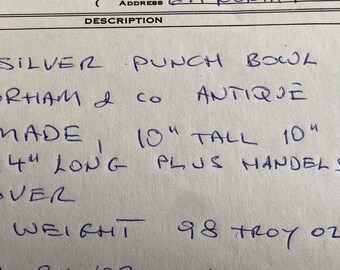 ( ADDRESS
DESCRIPTION
SILVER PUNCH BOWL
ORHAM & CO ANTIQUE
MADE, 10" TALL 10"
4" LONG PLUS HANDELS
OVER
WEIGHT 98 TROY OZ